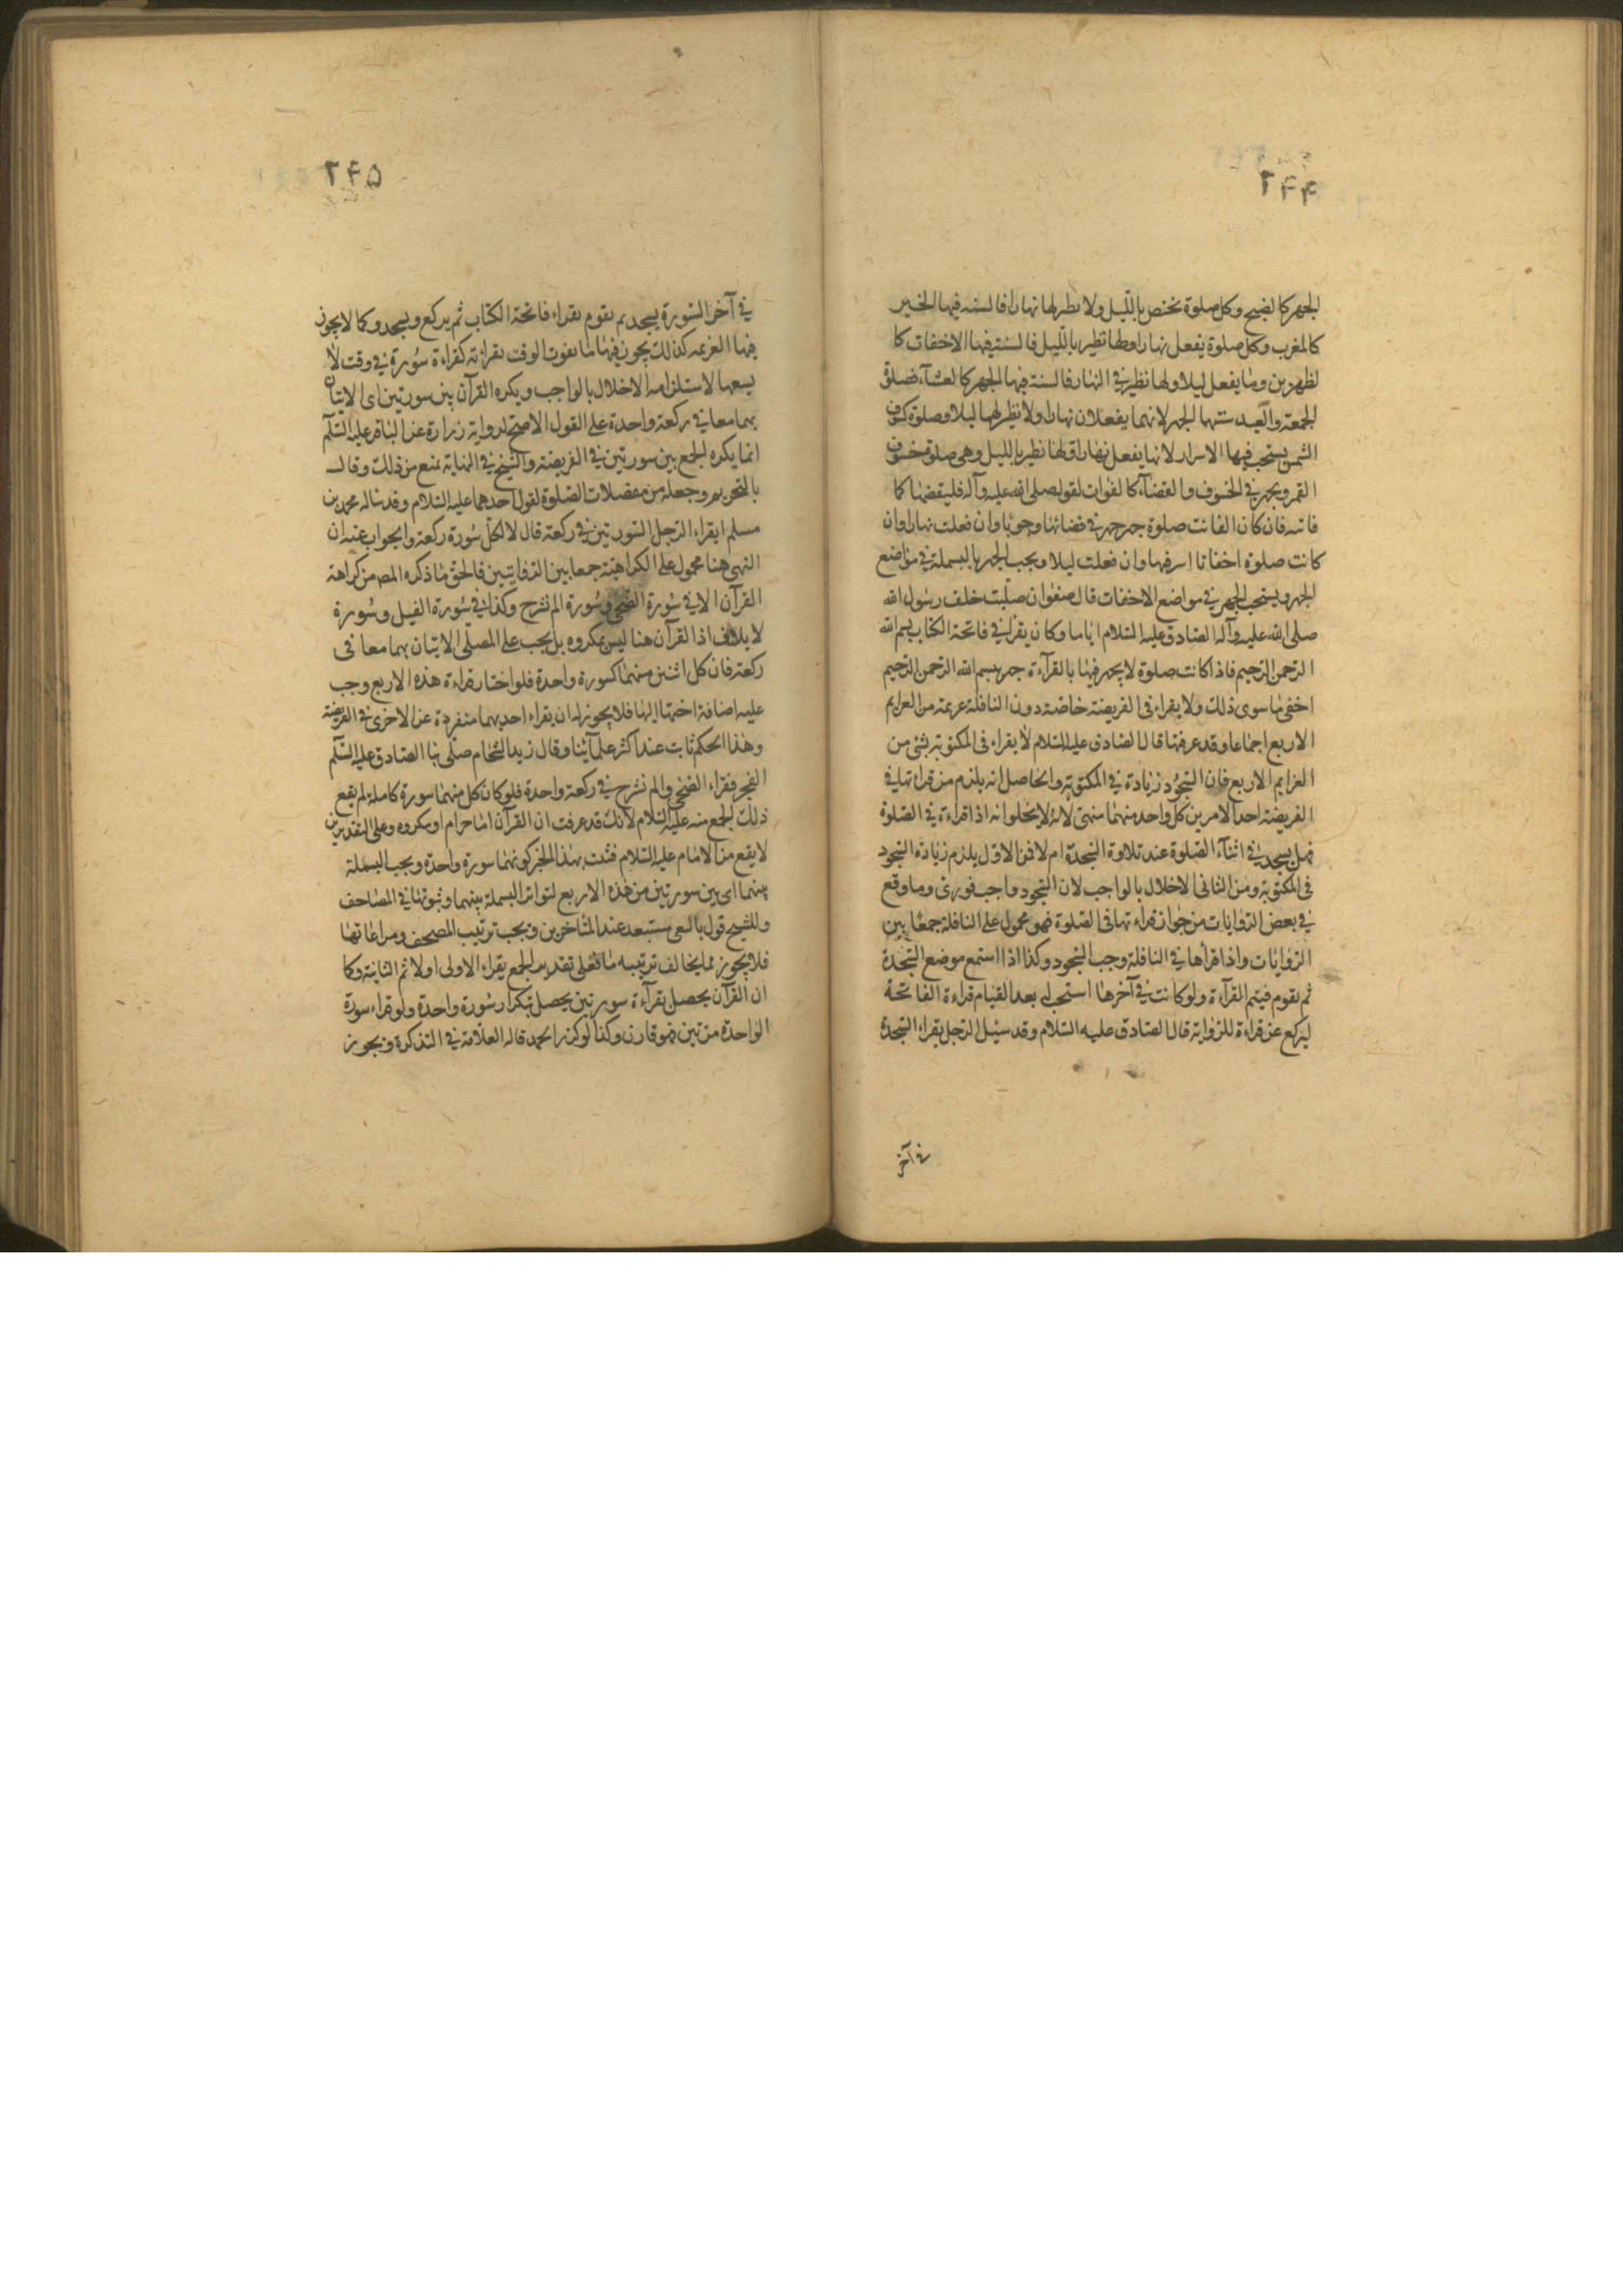 ۲۴۴
الجهر كالصبح وكل صلوة تختص بالليل ولا نظير لها نهارا فالسنه فيها الجهر
كالمغرب وكل صلوة يفعل نهارا ولها نظير بالليل فالسنة فيها الاخفات كا
لظهرين وما يفعل ليلا ولها نظير في النهار فالسنة فيها الجهر كالعشآء فصلوة
الجمعة والعيد سنتها الجهر لانهما يفعلان نهارا ولا نظير لهما ليلا وصلوة كسوف
الشمس يستحب فيها الاسرار لانها يفعل نهارا ولها نظير بالليل وهى صلوة خسوف
القمر ويجهر في الخسوف والقضآء كالفوات لقوله صلى الله عليه وآله فليقضها كما
فاته فان كان الفائت صلوة جهر جهر في قضائها وجوبا وان فعلت نهارا وان
كانت صلوة اخفاتا اسر فيها وان فعلت ليلا ويجب الجهر بالبسملة في مواضع
الجهر ويستحب الجهر في مواضع الاخفات قال صفوان صليت خلف رسول الله
صلى الله عليه وآله الصادق عليه السلام اياما وكان يقرا في فاتحة الكتاب بسم الله
الرحمن الرحيم فاذا كانت صلوة لا يجهر فيها بالقرآءة جهر ببسم الله الرحمن الرحيم
اخفى ما سوى ذلك ولا يقراء في الفريضة خاصة دون النافلة عزيمة من العزايم
الاربع اجماعا وقد عرفتها قال الصادق عليه السلام لا يقراء في المكتوبة بشئ من
العزايم الاربع فان السجود زيادة في المكتوبة والحاصل انه يلزم من قراءتها في
الفريضة احد الامرين كل واحد منهما منهى لانه لا يخلوا انه اذا قراءة في الصلوة
فهل يسجد في اثنآء الصلوة عند تلاوة السجدة ام لا فمن الاول يلزم زيادة السجود
في المكتوبة ومن الثانى الاخلال بالواجب لان السجود واجب فورى وما وقع
في بعض الروايات من جواز قراءتها في الصلوة فهو محمول على النافلة جمعا بين
الروايات واذا قرأها في النافلة وجب السجود وكذا اذا استمع موضع السجدة
ثم يقوم فيتم القرآءة ولو كانت في آخرها استحب له بعد القيام قراءة الفاتحة
ليركع عن قراءة للرواية قال الصادق عليه السلام وقد سئل الرجل يقراء السجدة
في آخر
۲۴۵
في آخر السورة يسجد ثم يقوم يقراء فاتحة الكتاب ثم يركع ويسجد وكما لا يجوز
فيها العزيمه كذلك يجوز فيها ما يفوت الوقت بقراءته كقراءة سورة في وقت لا
يسعها لاستلزامه الاخلال بالواجب ويكره القرآن بين سورتين اى الاتيان
بهما معا في ركعة واحدة على القول الاصح لرواية زرارة عن الباقر عليه السلم
انما يكره الجمع بين سورتين في الفريضة والشيخ في النهاية بمنع من ذلك وقال
بالتحريم وجعله من مفضلات الصلوة لقول احدهما عليه السلام وقد ساله محمد بن
مسلم ايقراء الرجل السورتين في ركعة قال لا لكل سورة ركعة والجواب عنه ان
النهى هنا محمول على الكراهية جمعا بين الروايتين فالحق ما ذكره المص من كراهة
القرآن الا في سورة الضحى وسورة الم نشرح وكذا في سورة الفيل وسورة
لايلاف اذ القرآن هنا ليس بمكروه بل يجب على المصلى الاتيان بهما معا فى
ركعة فان كل اثنين منهما كسورة واحدة فلو اختار قراءة هذه الاربع وجب
عليه اضافة اختها اليها فلا يجوز له ان يقراء احديهما منفردة عن الاخرى في الفريضة
وهذا الحكم ثابت عند اكثر علمآئنا وقال زيد الشحام صلى بنا الصادق عليه السلم
الفجر فقراء الضحى والم نشرح في ركعة واحدة فلو كان كل منهما سورة كاملة لم يقع
ذلك الجمع منه عليه السلام لانك قد عرفت ان القرآن اما حرام او مكروه وعلى التقديرين
لا يقع من الامام عليه السلام فثبت بهذا الخبر كونهما سورة واحدة ويجب البسملة
بينهما اى بين سورتين من هذه الاربع لتواتر البسملة بينهما وثبوتها في المصاحف
وللشيخ قول بالنفى مستبعد عند المتاخرين ويجب ترتيب المصحف ومراعاتها
فلا يجوز مما يخالف ترتيبه ما فعلى تقدير الجمع يقراء الاولى اولا ثم الثانية وكما
ان القرآن يحصل بقرآءة سورتين يحصل بتكرار سورة واحدة ولو قراء سورة
الواحدة مرتين فهو قارن وكذا لو كرر الحمد قاله العلامة في التذكرة ويجوز